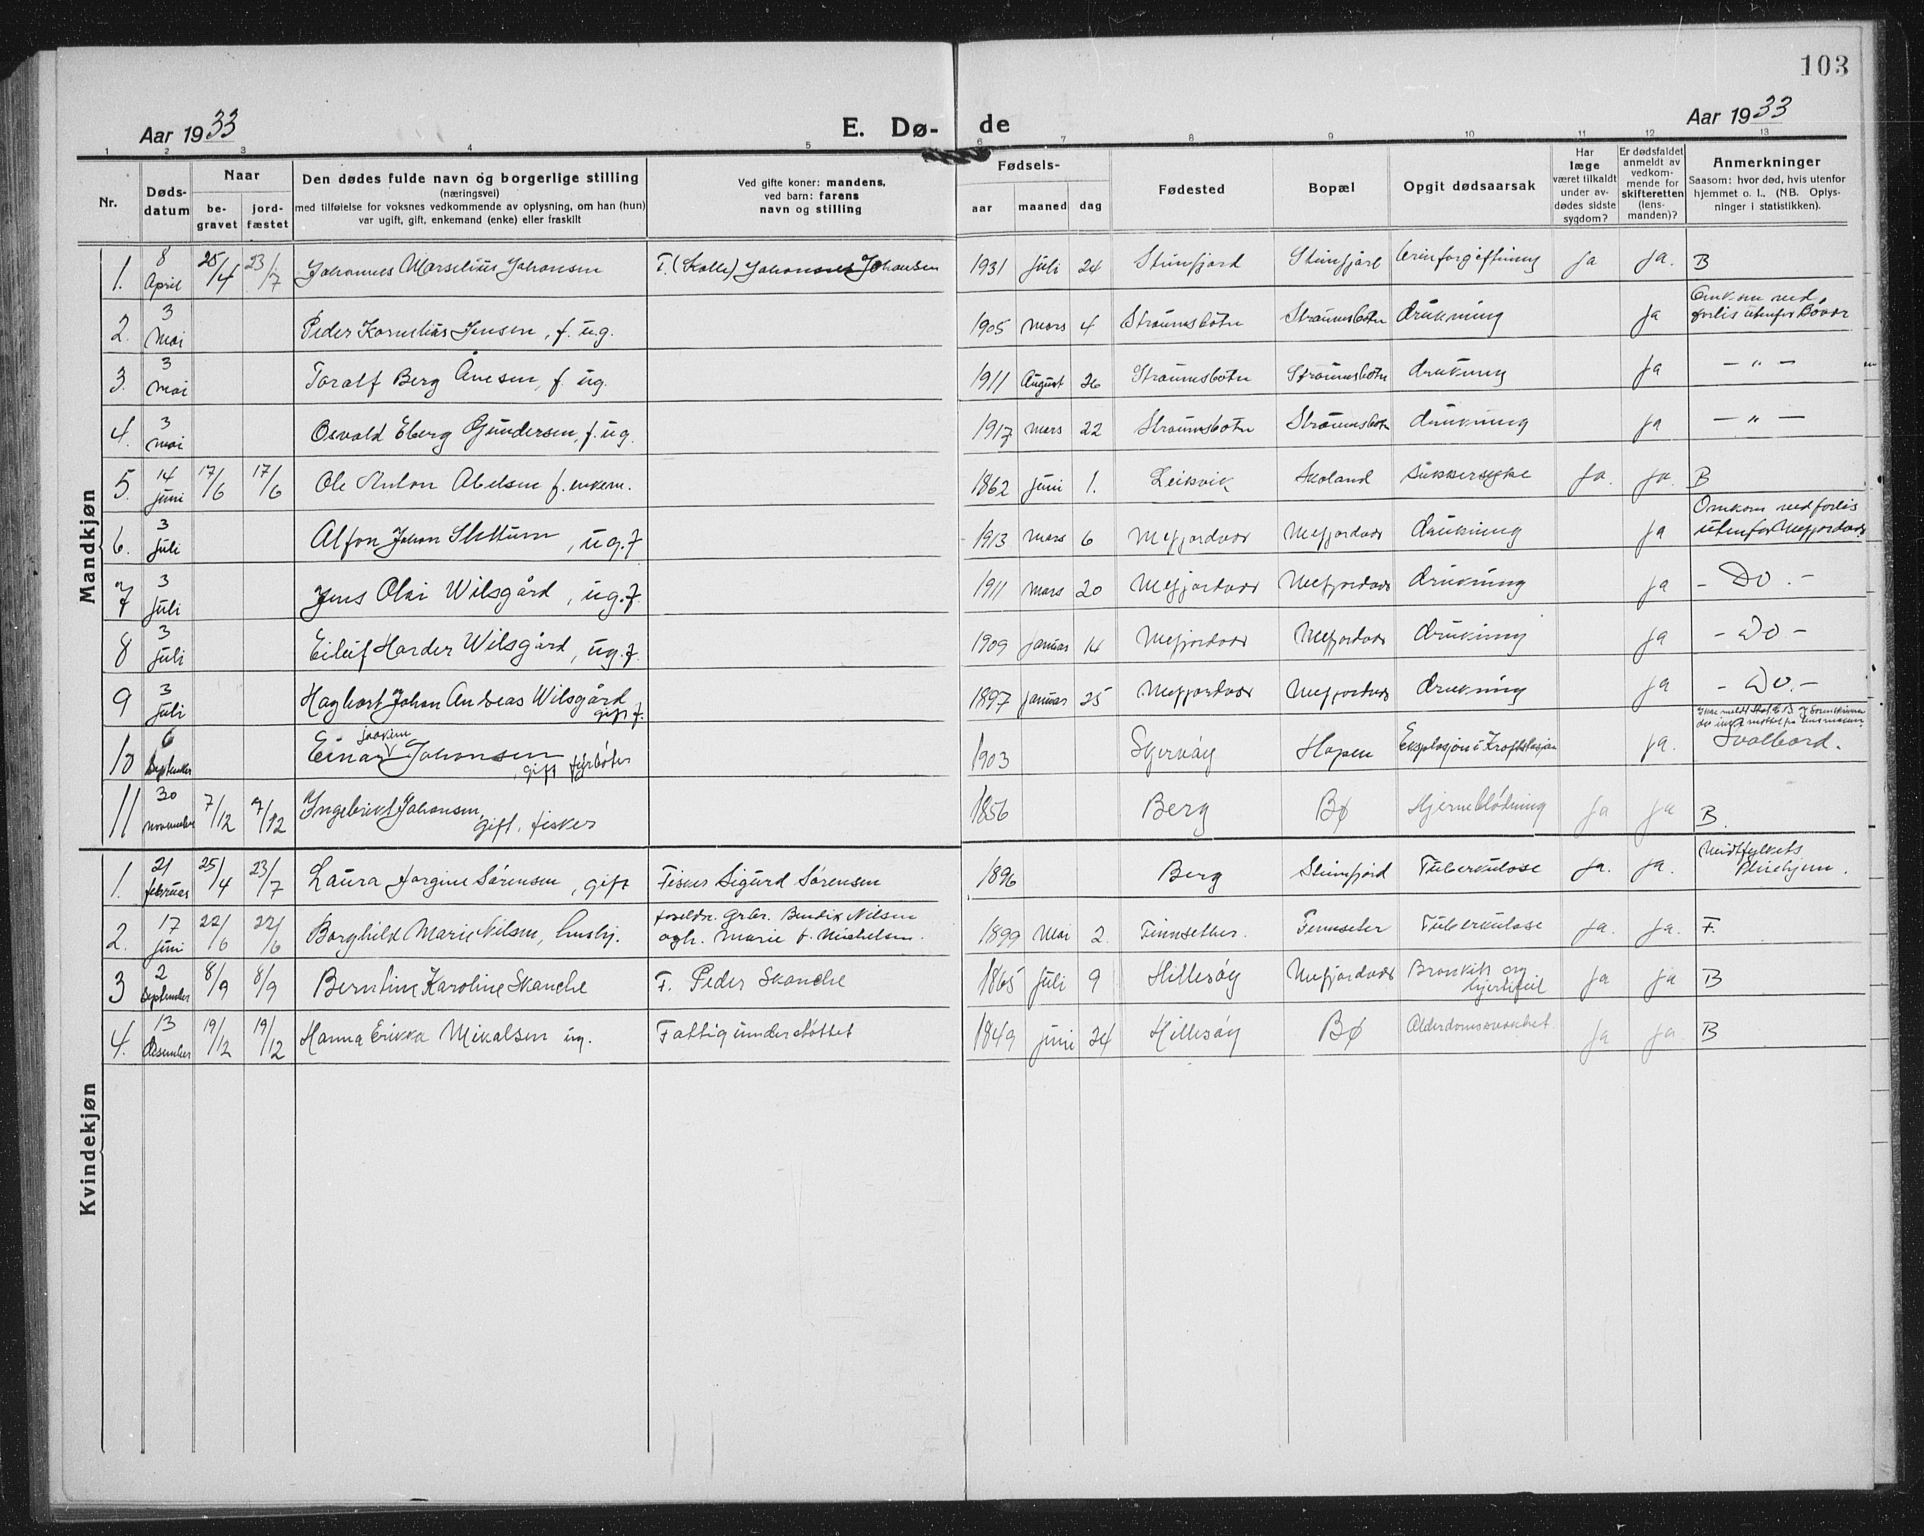 103
Aar 1933 E. Dø- de Aar 1933
1 2 3 4 5 6 7 8 9 10 11 12 13
Nr.
Døds-
datum
Naar
be-
gravet
jord-
fæstet
Den dødes fulde navn og borgerlige stilling
(næringsvei)
med tilføielse for voksnes vedkommende av oplysning, om han (hun)
var ugift, gift, enkemand (enke) eller fraskilt
Ved gifte koner: mandens,
ved barn: farens
navn og stilling
Fødsels-
aar maaned dag
Fødested
Bopæl
Opgit dødsaarsak
Har
læge
været tilkaldt
under av-
dødes sidste
sygdom?
Er dødsfaldet
anmeldt av
vedkom-
mende for
skifteretten
(lens-
manden)?
Anmerkninger
Saasom: hvor død, hvis utenfor
hjemmet o. l., (NB. Oplys-
ninger i statistikken).
Mandkjøn
1. 8 April 25/4 23/7 Johannes Marselius Johansen F. (Kalle) Johannes Johansen 1931 Juli 24 Steinfjord Steinfjord Urinforgiftning Ja Ja. B
2. 3 Mai Peder Kornelius Jensen, f. ug. 1905 Mars 4 Straumsbotn Straumsbotn drukning Ja Omkom ved
forlis utenfor Bøvær
3. 3 Mai Toralf Berg Ånesen, f. ug. 1911 August 26 Straumsbotn Straumsbotn drukning Ja — " —
4. 3 Mai Osvald Eberg Gundersen, f. ug. 1917 Mars 22 Straumsbotn Straumsbotn drukning Ja — " —
5. 14 Juni 17/6 17/6 Ole Anton Abelsen f. enkem. 1862 Juni 1. Leikvik Skoland Sukkersyke Ja. Ja. B
6. 3 Juli Alfon Johan Slettum, ug. f 1913 Mars 6 Mefjordvær Mefjordvær drukning Ja Omkom ved forlis
utenfor Mefjordvær
7 3 Juli Jens Olai Wilsgård, ug. f. 1911 Mars 20 Mefjordvær Mefjordvær drukning Ja - Do. -
8 3 Juli Eiluf Harder Wilsgård, ug. f. 1909 Januar 14 Mefjordvær Mefjordvær drukning Ja - Do -
9 3 Juli Hagbart Johan Andreas Wilsgård
gift f. 1897 Januar 25 Mefjordvær Mefjordvær drukning Ja - Do. -
10 6 September Einar Joakim Johansen
, gift fyrbøter 1903 Skjervøy Hopen Eksplosjon i Kraftstasjon Ja.
Svalbard.
11 30 November 7/12 7/12 Ingebrikt Johansen,
gift. fisker 1856 Berg Bø Hjerneblødning Ja Ja B.
Kvindekjøn
1. 21 februar 25/4 23/7 Laura Jorgine Sørensen, gift Fisker Sigurd Sørensen 1896 Berg Steinfjord Tuberkulose Ja. Ja. Midtfylkets
Pleiehjem.
2. 17 Juni 22/6 22/6 Borghild Marie Nilsen, husbj. foreldre. Grbr. Bendik Nilsen
ogh. Marie f. Michelsen. 1899 Mai 2. Finnsether. Finnseter Tuberkulose Ja. Ja. F.
3 2 September 8/9 8/9 Berntine Karoline Skanche F. Peder Skanche 1865 Juli 9 Hillesøy Mefjordvær Bronkit og
hjertefeil Ja Ja B
4. 13 Desember 19/12 19/12 Hanna Erikka Mikalsen ug. Fattigunderstøttet 1849 Juni 24 Hillesøy Bø Alderdomssvakhet Ja Ja B